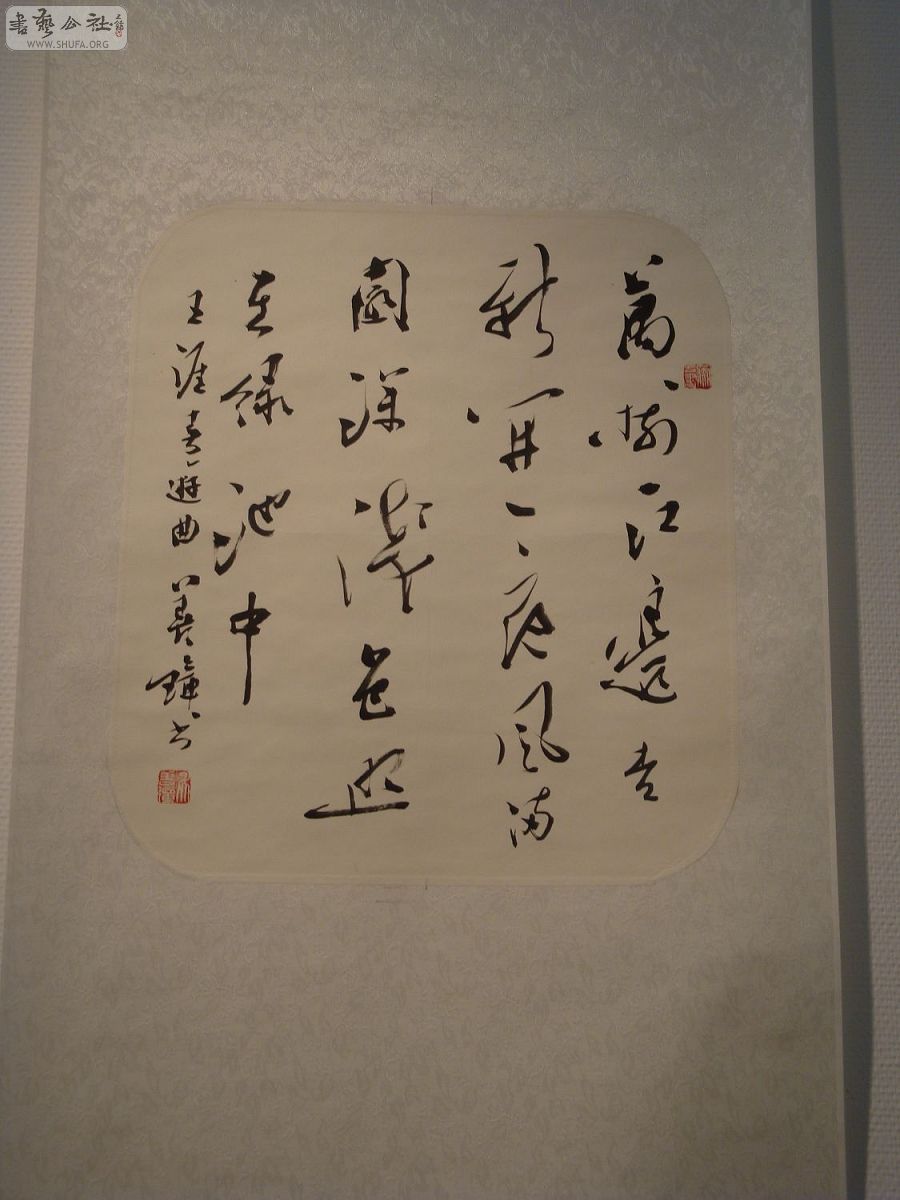 書藝公社
WWW.SHUFA.ORG
萬樹江邊杏
新開一夜風滿
園深淺色照
在綠池中
王涯春遊曲 善